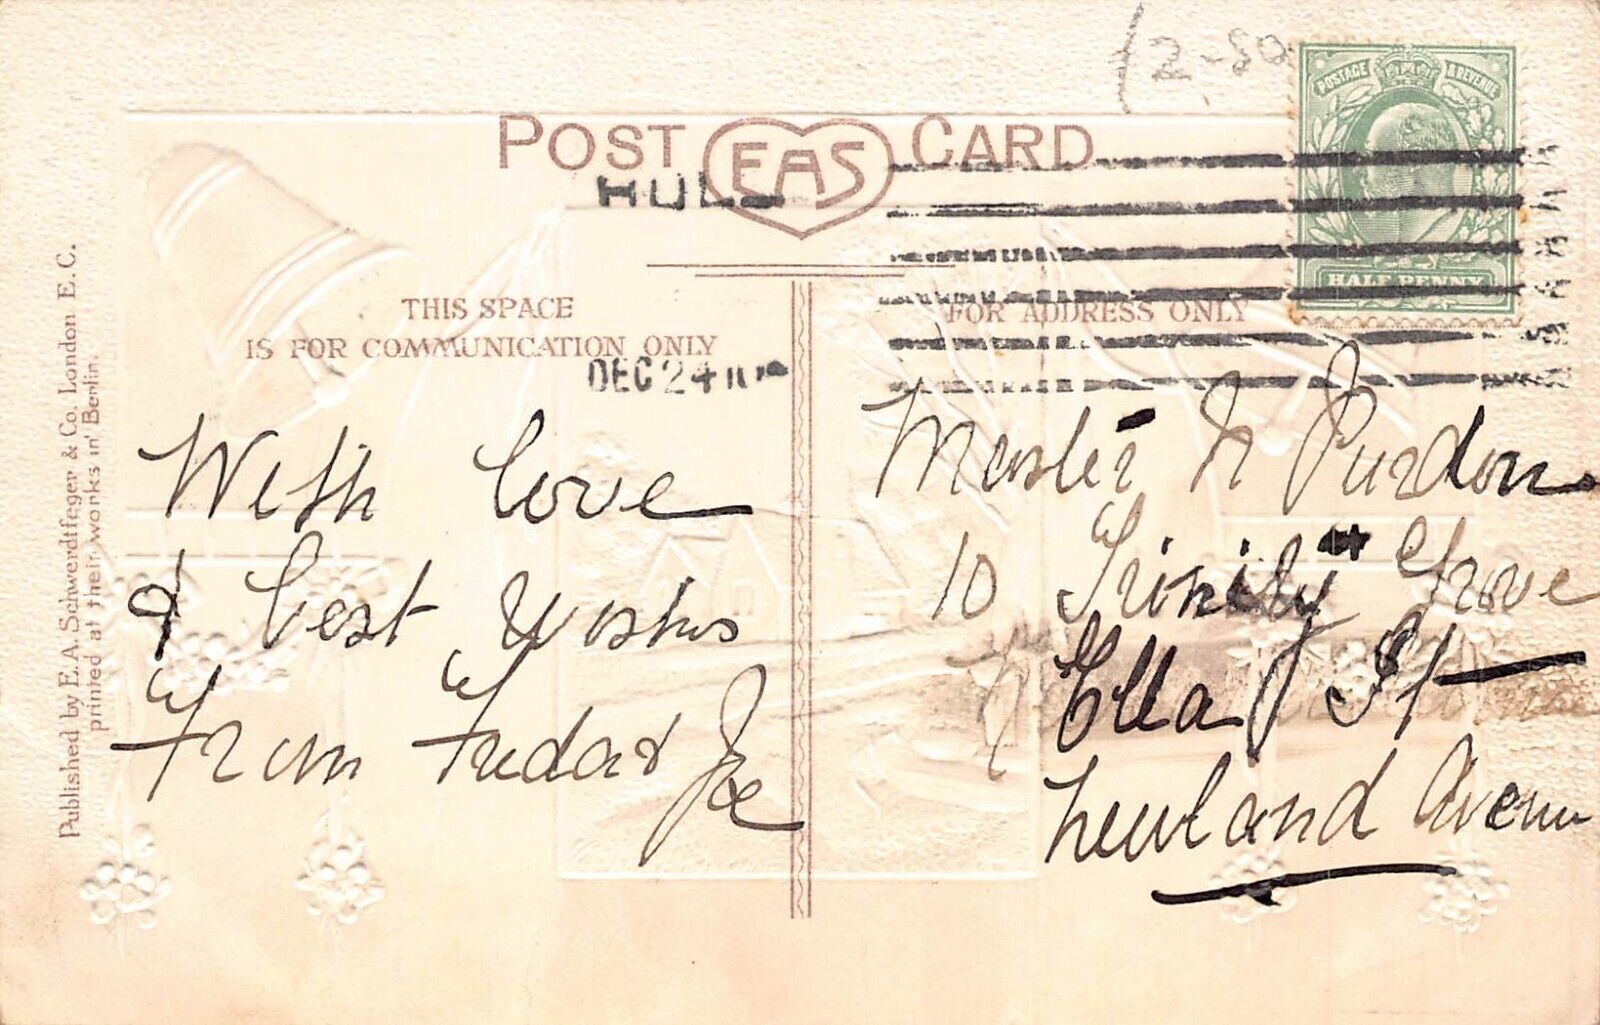 2-50
POST CARD
EAS
POSTAGE & REVENUE
HALFPENNY
HULL
THIS SPACE
IS FOR COMMUNICATION ONLY
DEC 24
FOR ADDRESS ONLY
Published by E. A. Schwerdtfeger & Co. London E. C.
printed at their works in Berlin.
With love
& best wishes
From
Joe
Master N Purdon
10 Trinity Grove
Ella St
Newland Avenue